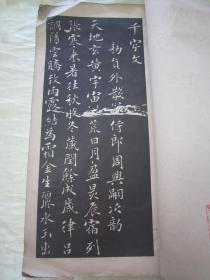 千字文
勑員外散騎侍郎周興嗣次韻
天地玄黃宇宙洪荒日月盈昃辰宿列
張寒來暑往秋收冬藏閏餘成歲律呂
調陽雲騰致雨露結為霜金生麗水玉出